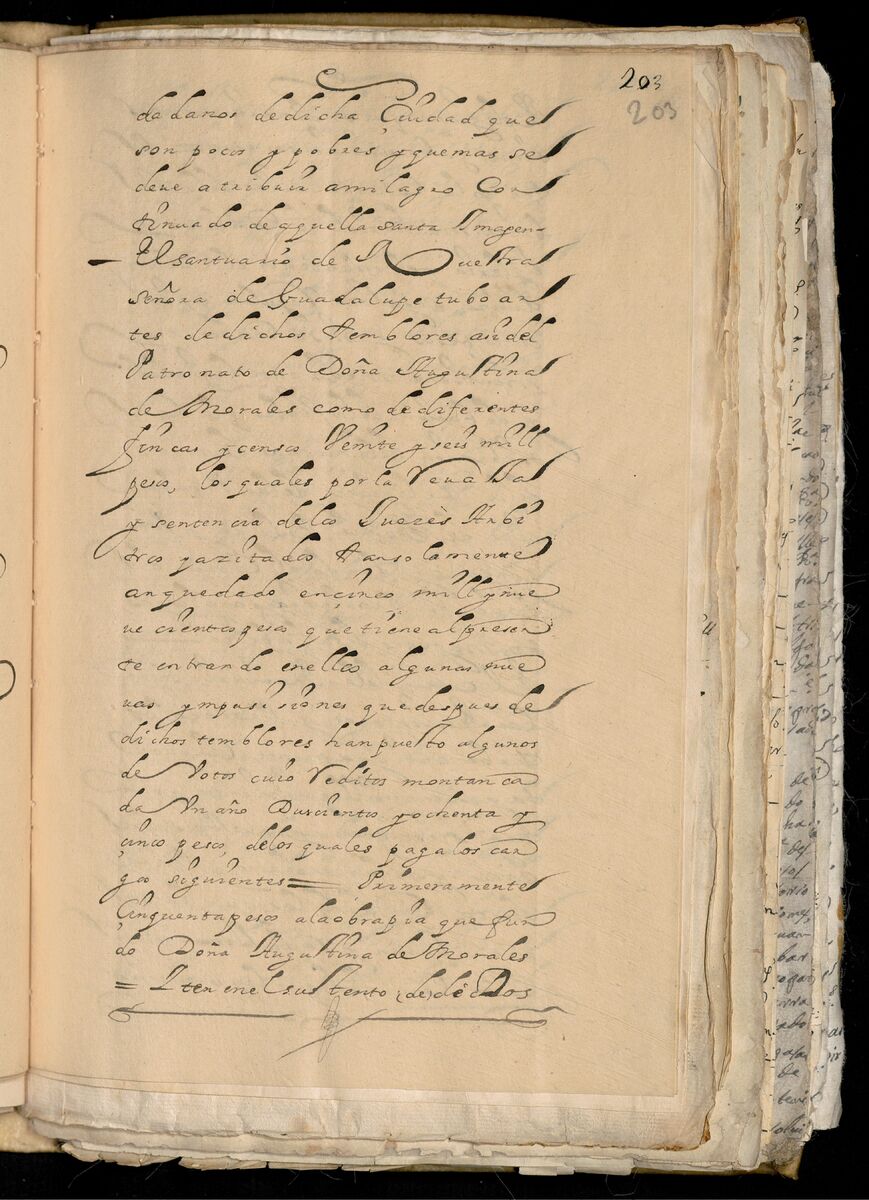 203
203
dadanos dedicha Ciudad que
son pocos y pobres y quemas se
deve atribuir amilagro Con
tinuado de aquella santa Imagen
El santuario de Nuestra
señora de Guadalupe tubo an
tes de dichos temblores asi del
Patronato de Doña Augustina
de Morales como de diferentes
fincas y censos Veinte y seis mill
pesos, los quales por la Revaja
y sentencia delos Juezes Arbi
tros yazitados tansolamente
anquedado en cinco mill y nue
ve cientos pesos que tiene al presen
te entrando enellos algunas nue
vas ymposisiones que despues de
dichos temblores han puesto algunos
de Votos cuio Reditos montan ca
da Un año Duscientos y ochenta y
çinco pesos, delos quales paga los car
gos siguientes = Primeramente
Çinquenta pesos ala obra pia que fun
do Doña Augustina de Morales
= Iten en el sustento (de) de Dos